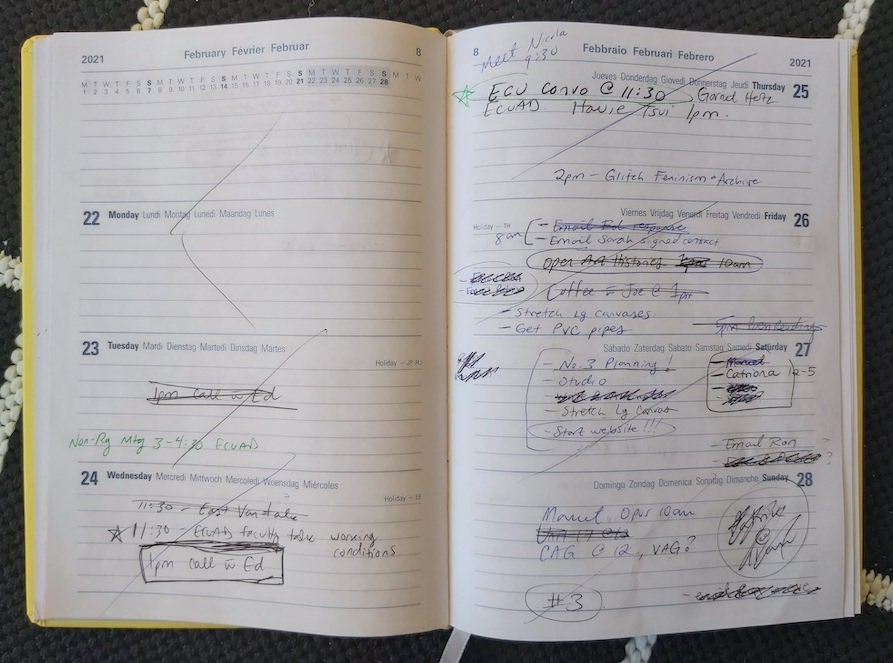 2021 February Février Februar 8
M T W T F S S M T W T F S S M T W T F S S M T W T F S S M T W
1 2 3 4 5 6 7 8 9 10 11 12 13 14 15 16 17 18 19 20 21 22 23 24 25 26 27 28
22 Monday Lundi Montag Lunedi Maandag Lunes
23 Tuesday Mardi Dienstag Martedi Dinsdag Martes
Holiday — JP
1pm call w Ed
Non-Rg Mtg 3-4:30 ECUAD
24 Wednesday Mercredi Mittwoch Mercoledi Woensdag Miércoles
Holiday — EE
11:30 - East Van
11:30 - ECUAD faculty talk working
conditions
1pm call w Ed
8 Febbraio Februari Febrero 2021
Meet Nicola
9:30
Jueves Donderdag Giovedi Donnerstag Jeudi Thursday 25
ECU Convo @ 11:30
ECUAD Howie Tsui 1pm.
2pm - Glitch Feminism Archive
Viernes Vrijdag Venerdi Freitag Vendredi Friday 26
Holiday — TH
8am - Email Ed response
- Email Sarah signed contact
Open Art Histories 10am
Coffee w Joe @ 1pm
- Stretch Lg canvases
- Get PVC pipes
5pm
Sábado Zaterdag Sabato Samstag Samedi Saturday 27
- No. 3 Planning!
- Studio
- Catriona 12-5
- Stretch Lg Canvas
- Start website!!!
- Email Ron ?
Domingo Zondag Domenica Sonntag Dimanche Sunday 28
Manuel Opus 10am
CAG @ 12, VAG?
#3